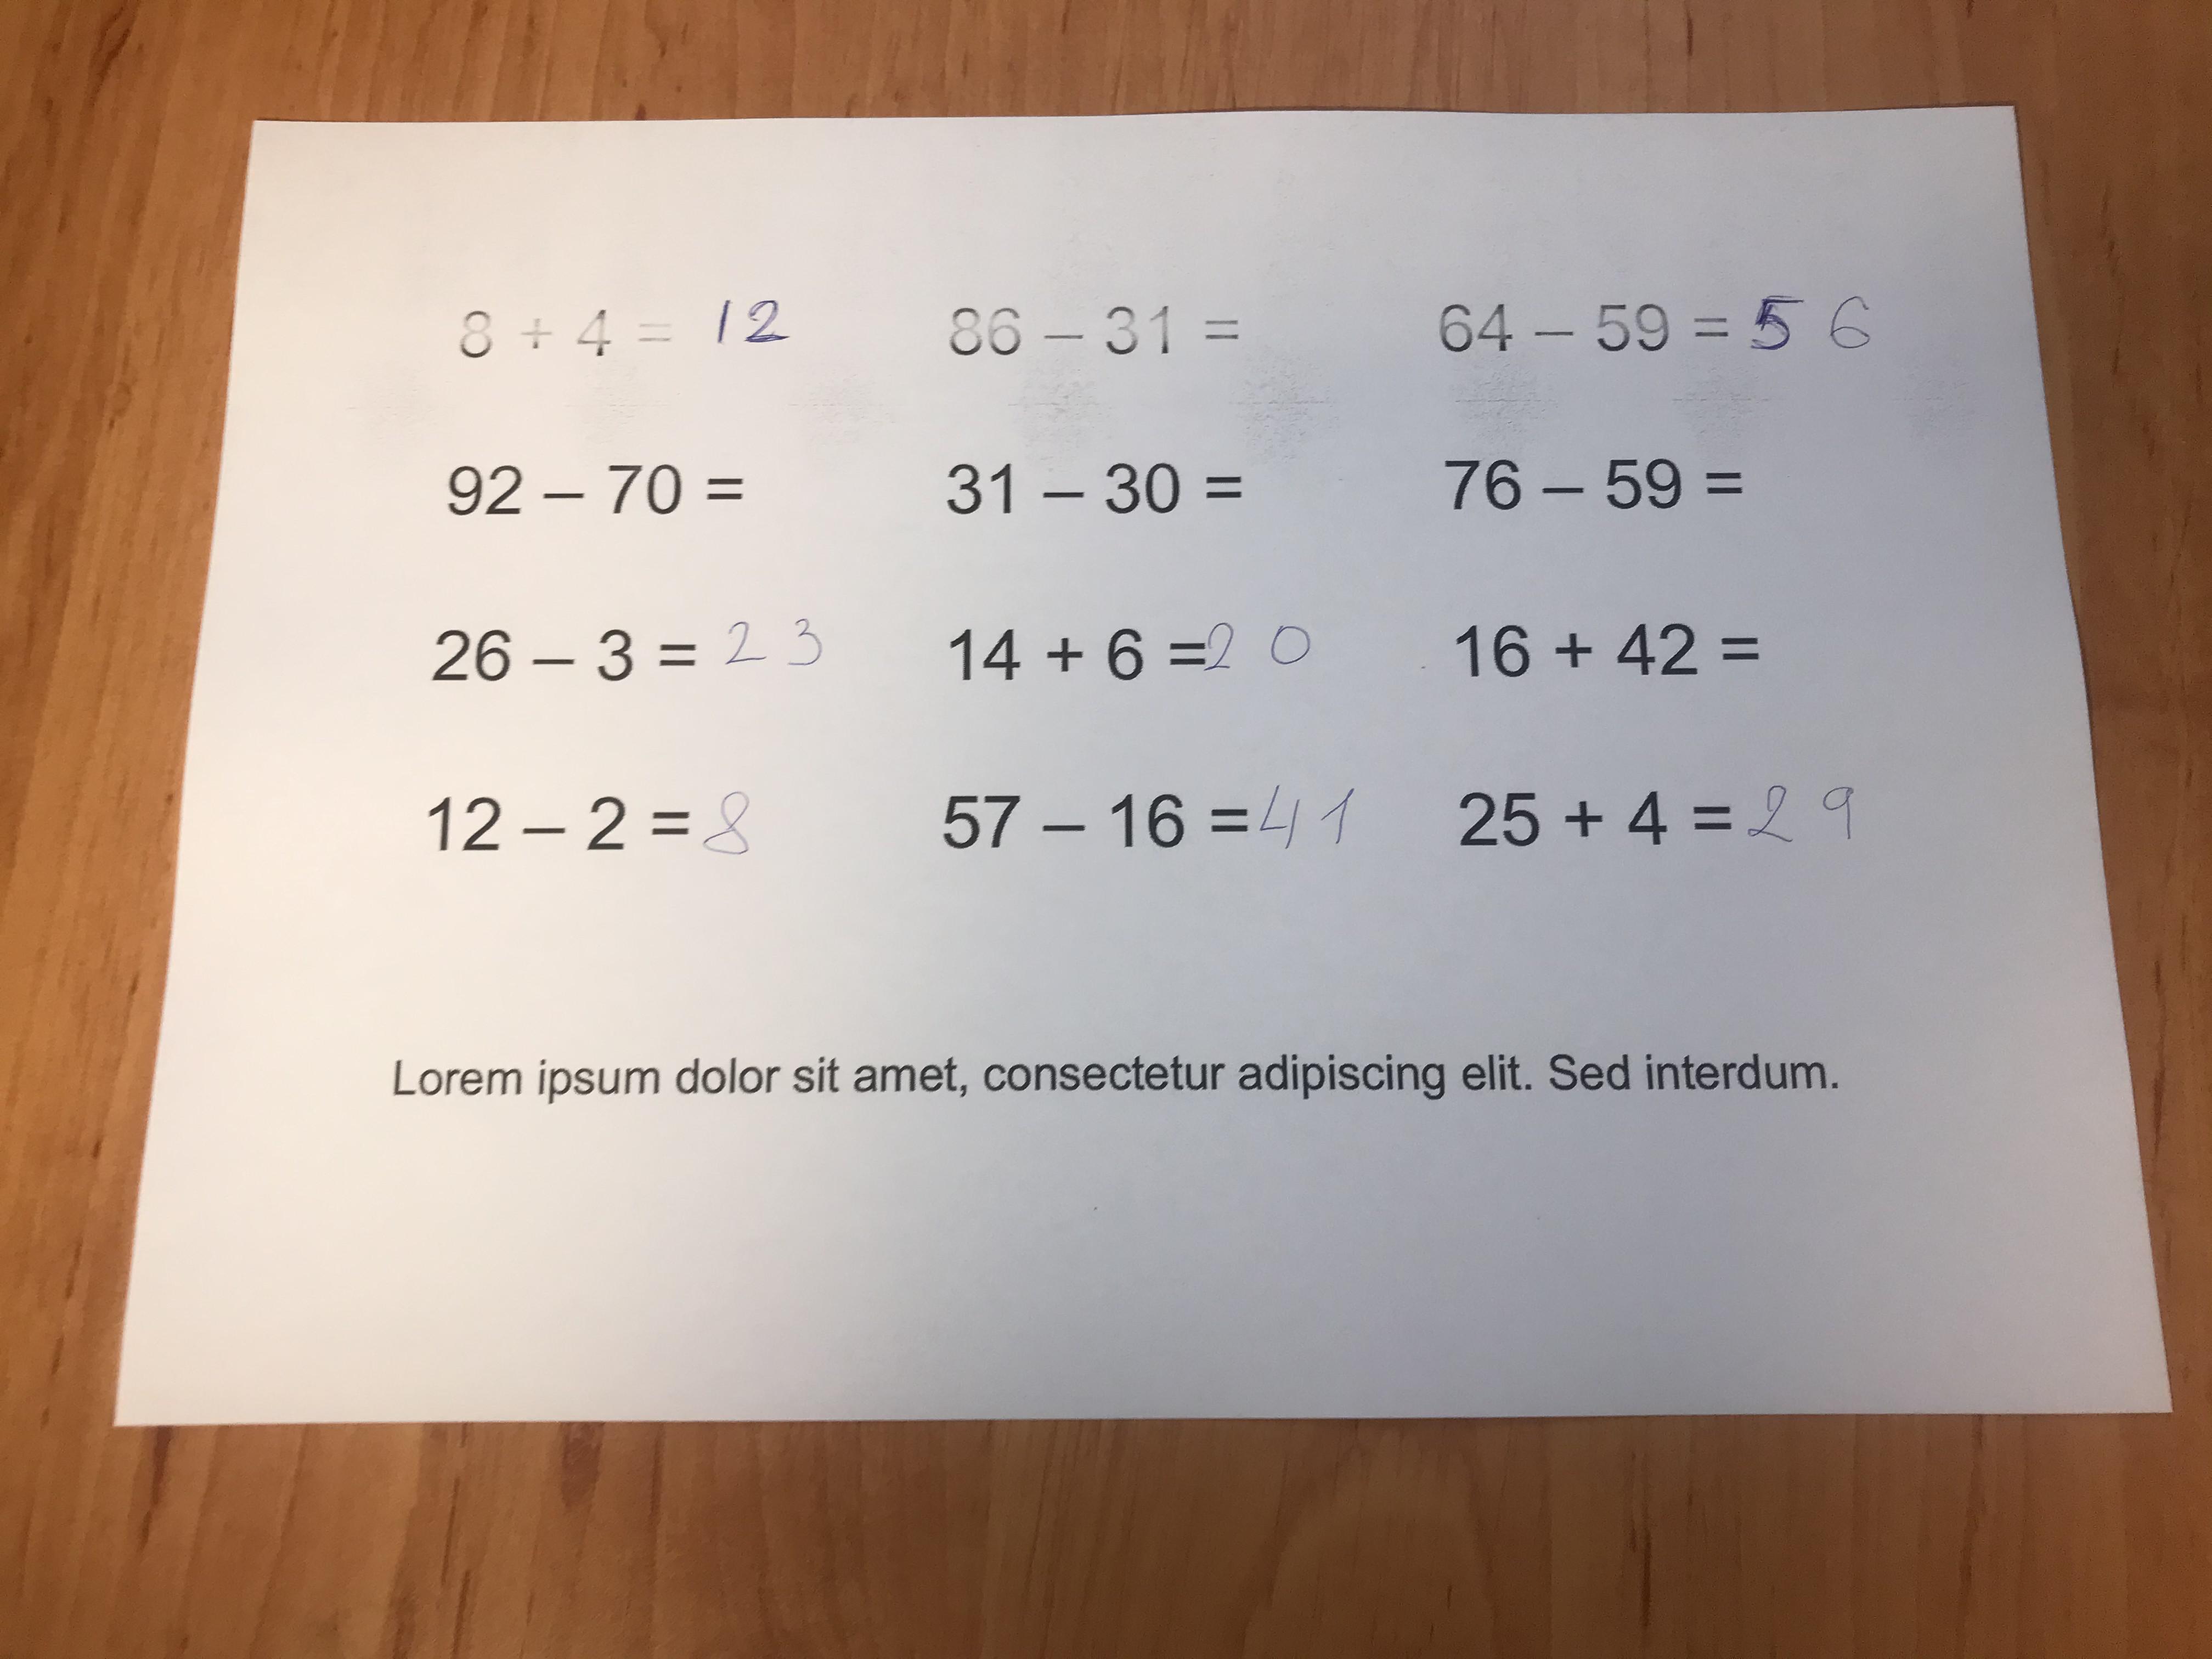 8 + 4 = 12 86 – 31 = 64 – 59 = 56
92 – 70 = 31 – 30 = 76 – 59 =
26 – 3 = 23 14 + 6 = 20 16 + 42 =
12 – 2 = 8 57 – 16 = 41 25 + 4 = 29
Lorem ipsum dolor sit amet, consectetur adipiscing elit. Sed interdum.